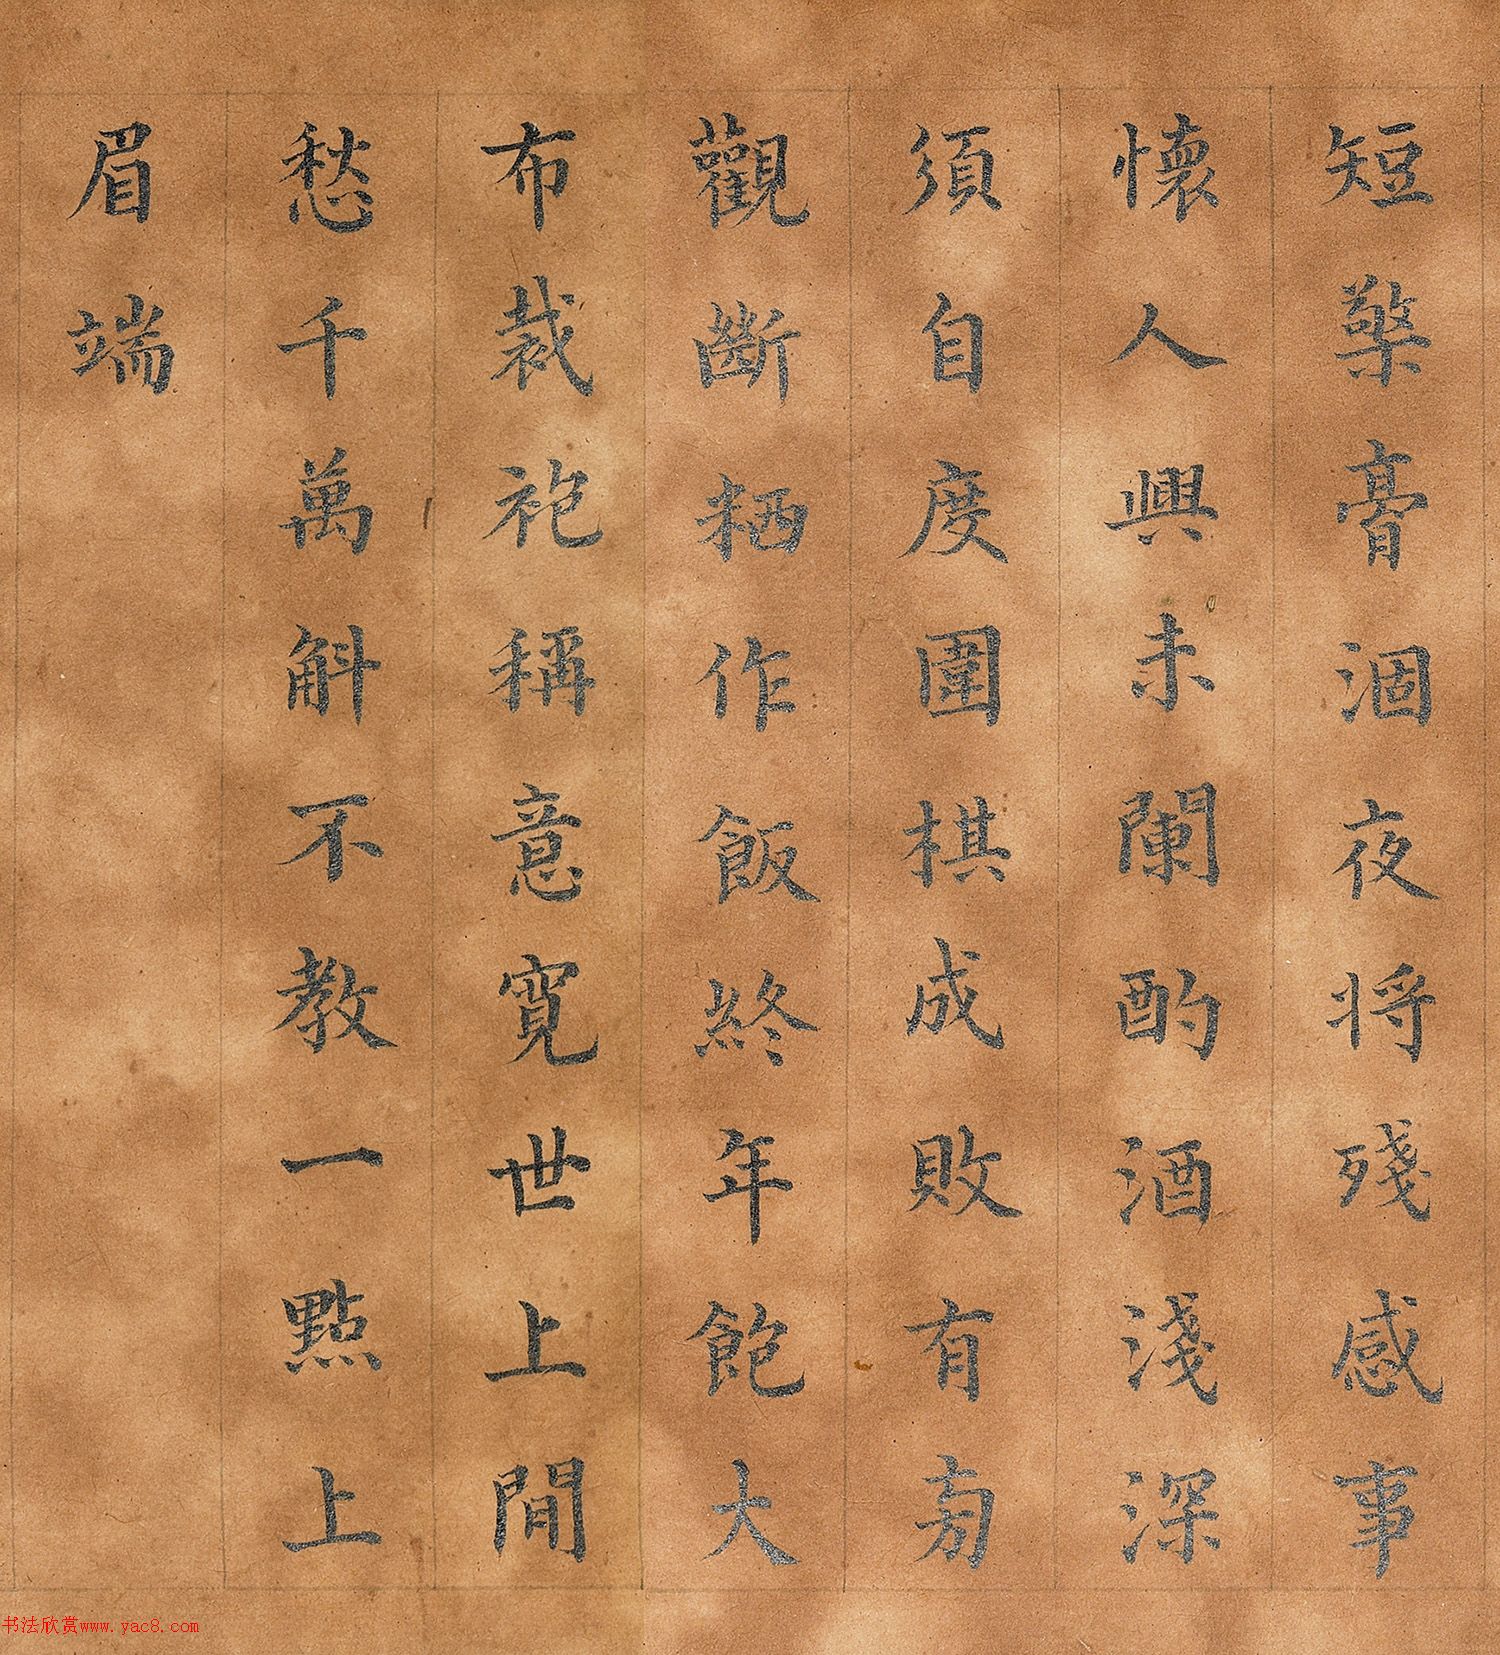 短檠膏涸夜将殘感事
懷人興未闌酌酒淺深
須自度圍棋成敗有旁
觀斷粞作飯終年飽大
布裁袍稱意寬世上閒
愁千萬斛不教一點上
眉端
书法欣赏www.yac8.com